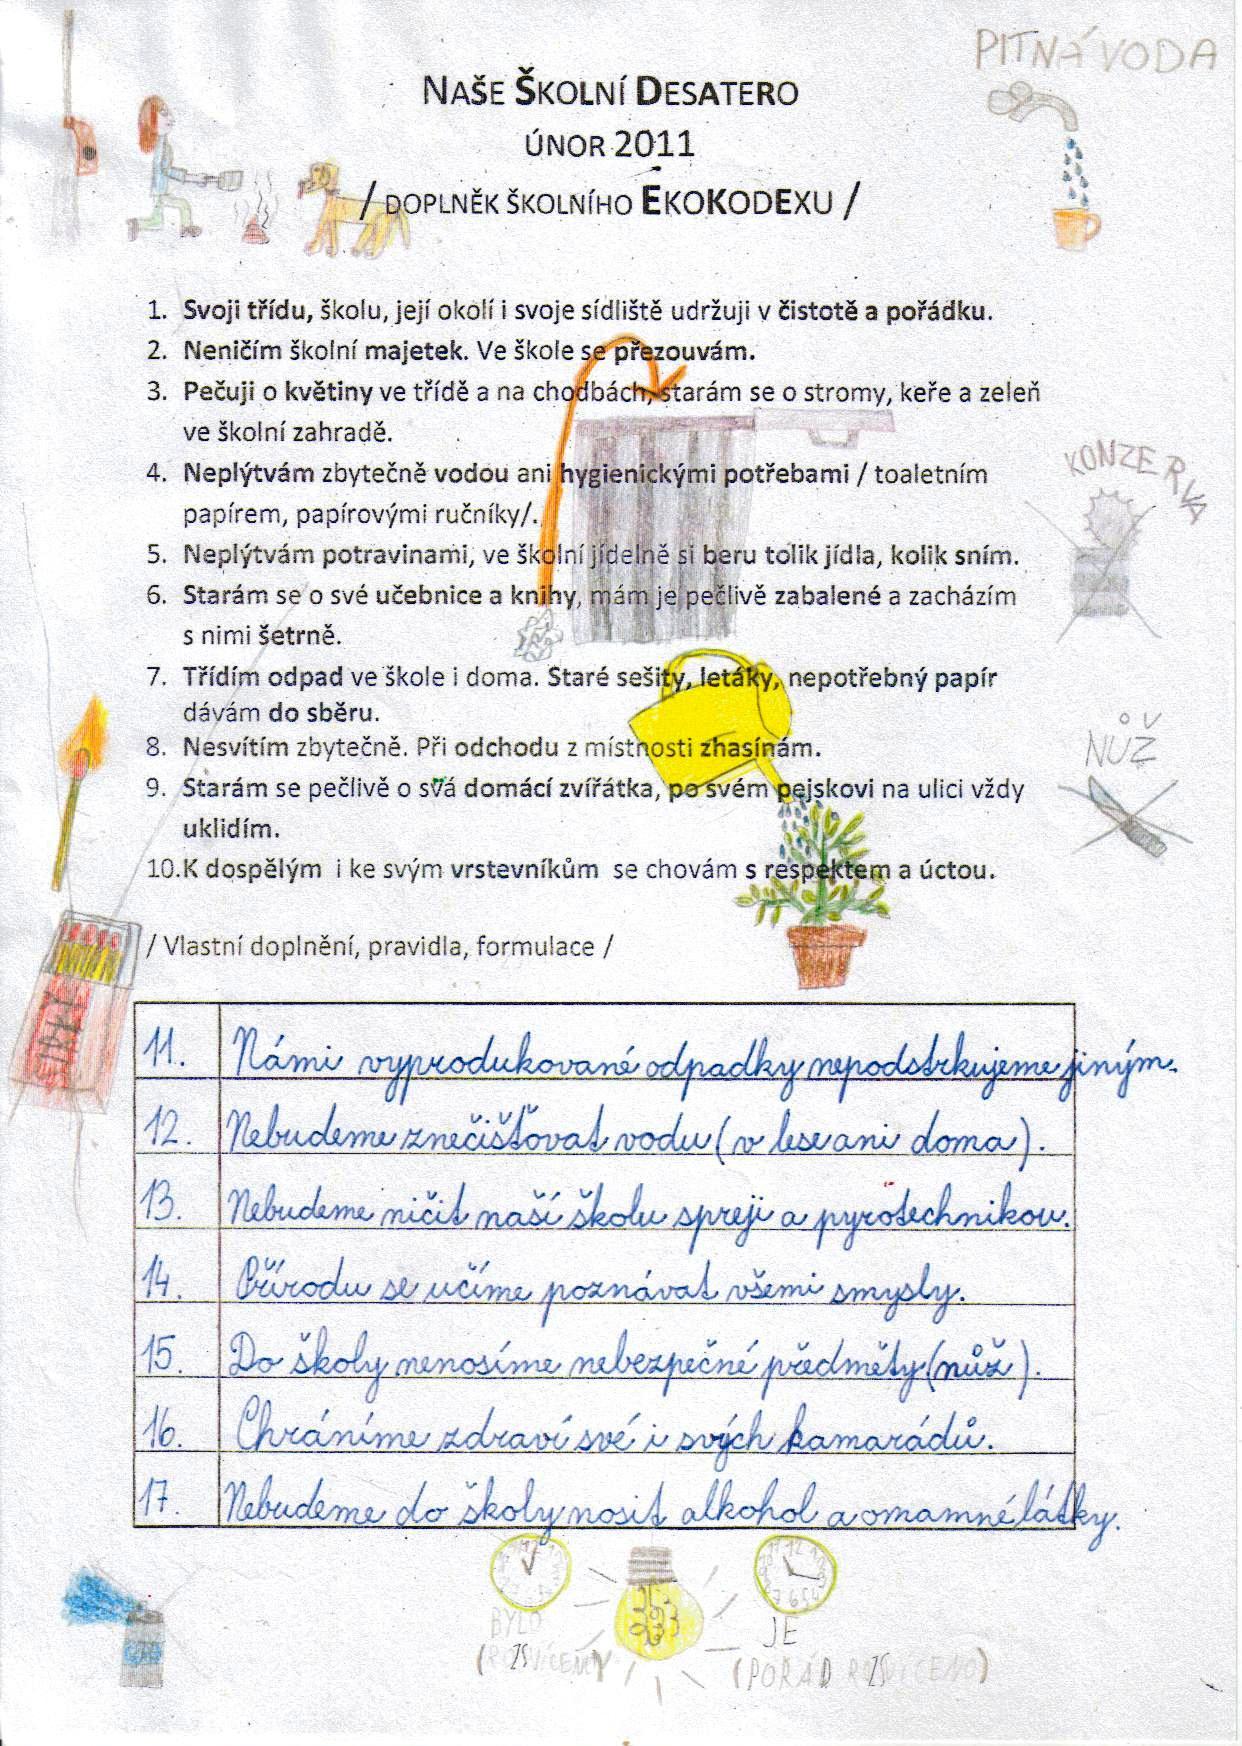 PITNÁ VODA
NAŠE ŠKOLNÍ DESATERO
ÚNOR 2011
/ DOPLNĚK ŠKOLNÍHO EKOKODEXU /
1. Svoji třídu, školu, její okolí i svoje sídliště udržuji v čistotě a pořádku.
2. Neničím školní majetek. Ve škole se přezouvám.
3. Pečuji o květiny ve třídě a na chodbách, starám se o stromy, keře a zeleň
ve školní zahradě.
KONZERVA
4. Neplýtvám zbytečně vodou ani hygienickými potřebami / toaletním
papírem, papírovými ručníky/.
5. Neplýtvám potravinami, ve školní jídelně si beru tolik jídla, kolik sním.
6. Starám se o své učebnice a knihy, mám je pečlivě zabalené a zacházím
s nimi šetrně.
7. Třídím odpad ve škole i doma. Staré sešity, letáky, nepotřebný papír
dávám do sběru.
NŮŽ
8. Nesvítím zbytečně. Při odchodu z místnosti zhasínám.
9. Starám se pečlivě o svá domácí zvířátka, po svém pejskovi na ulici vždy
uklidím.
10.K dospělým i ke svým vrstevníkům se chovám s respektem a úctou.
/ Vlastní doplnění, pravidla, formulace /
SIRKY
11. Námi vyprodukované odpadky nepodstrkujeme jiným.
12. Nebudeme znečišťovat vodu (v lese ani doma).
13. Nebudeme ničit naší školu spreji a pyrotechnikou.
14. Přírodu se učíme poznávat všemi smysly.
15. Do školy nenosíme nebezpečné předměty (nůž).
16. Chráníme zdraví své i svých kamarádů.
17. Nebudeme do školy nosit alkohol a omamné látky.
BYLO
JE
(ROZSVÍCENO)
(POŘÁD ROZSVÍCENO)